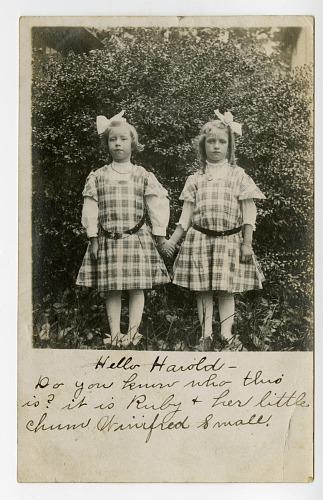 Hello Harold -
Do you know who this
is? it is Ruby & her little
chum Winifred Small.